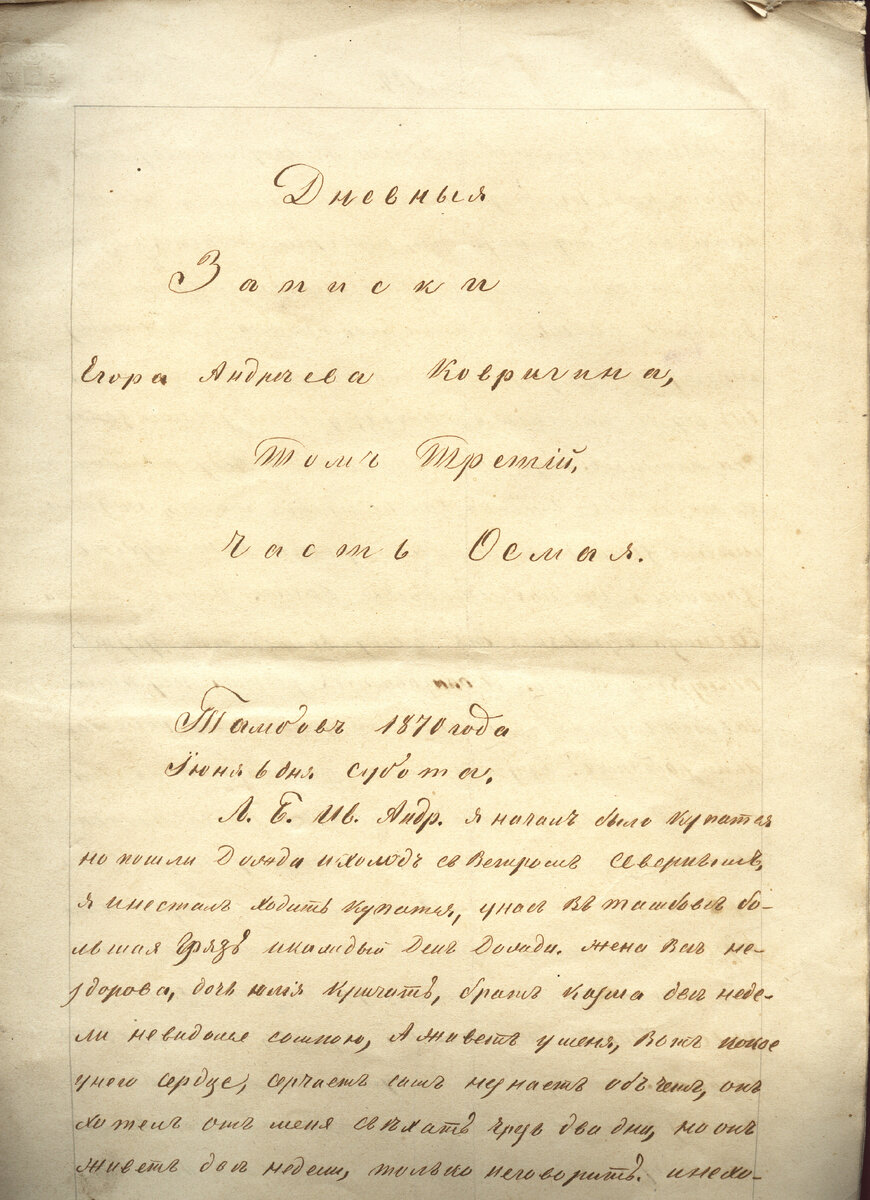 Дневныя
Записки
Егора Андрѣева Ковригина,
Томъ Третій,
Часть Осмая.
Тамбовъ 1870 года
Іюня 6 дня субота,
Л. Б. Ив. Андр. я началъ было купатся
но пошли Дожда и холодъ съ Ветромъ Севернымъ,
я инесталъ ходить купатся, унасъ Въ тамбовъ бо-
льшая Грязь икаждый День Дожди. жена Все не-
здорова, дочь юлія Кричатъ, братъ Казма две неде-
ли невидалсе сомною, А живетъ уменя, Вотъ
унего сердце, серчаетъ самъ незнаетъ объ чемъ, онъ
хотелъ отъ меня съѣхать чрезъ два дни, но онъ
живетъ две недели, только неговоритъ. инехо-